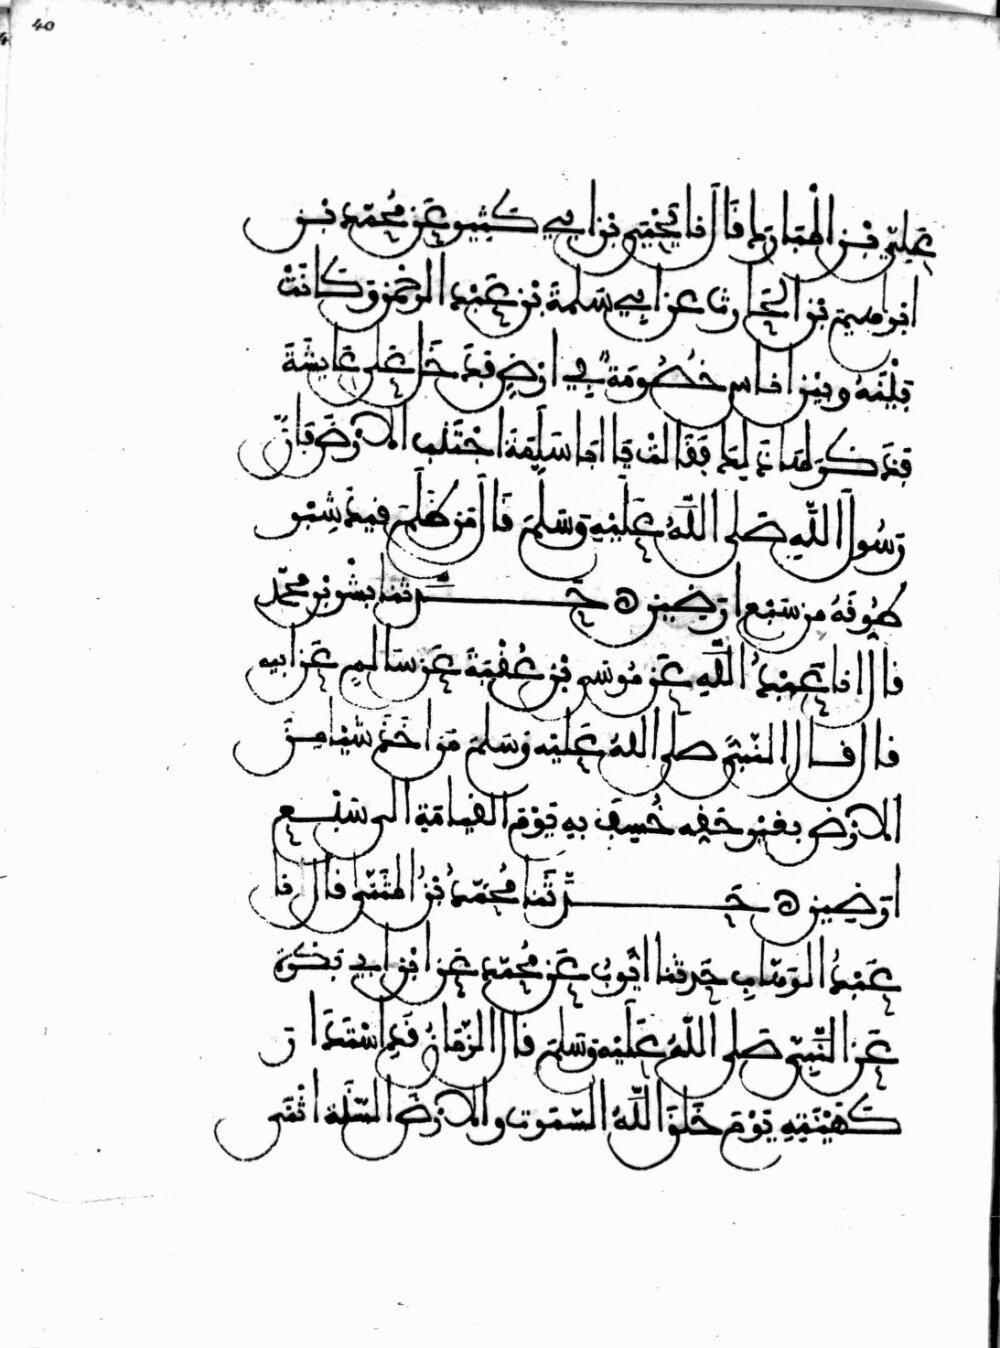 40
علي بن المبارك قال نا يحيى بن ابي كثير عن محمد بن
ابراهيم بن الحارث عن ابي سلمة بن عبد الرحمن وكانت
بينه وبين اناس خصومة في ارض فدخل على عايشة
فذكر لها ذلك فقالت يا ابا سلمة اجتنب الارض فان
رسول الله صلى الله عليه وسلم قال من ظلم قيد شبر
طوقه من سبع ارضين حدثنا بشر بن محمد
قال انا عبد الله عن موسى بن عقبة عن سالم عن ابيه
قال قال النبي صلى الله عليه وسلم من اخذ شيا من
الارض بغير حقه خسف به يوم القيامة الى سبع
ارضين حدثنا محمد بن المثنى قال نا
عبد الوهاب حدثنا ايوب عن محمد عن ابن ابي بكرة
عن النبي صلى الله عليه وسلم قال الزمان قد استدار
كهيئته يوم خلق الله السموت والارض السنة اثنى